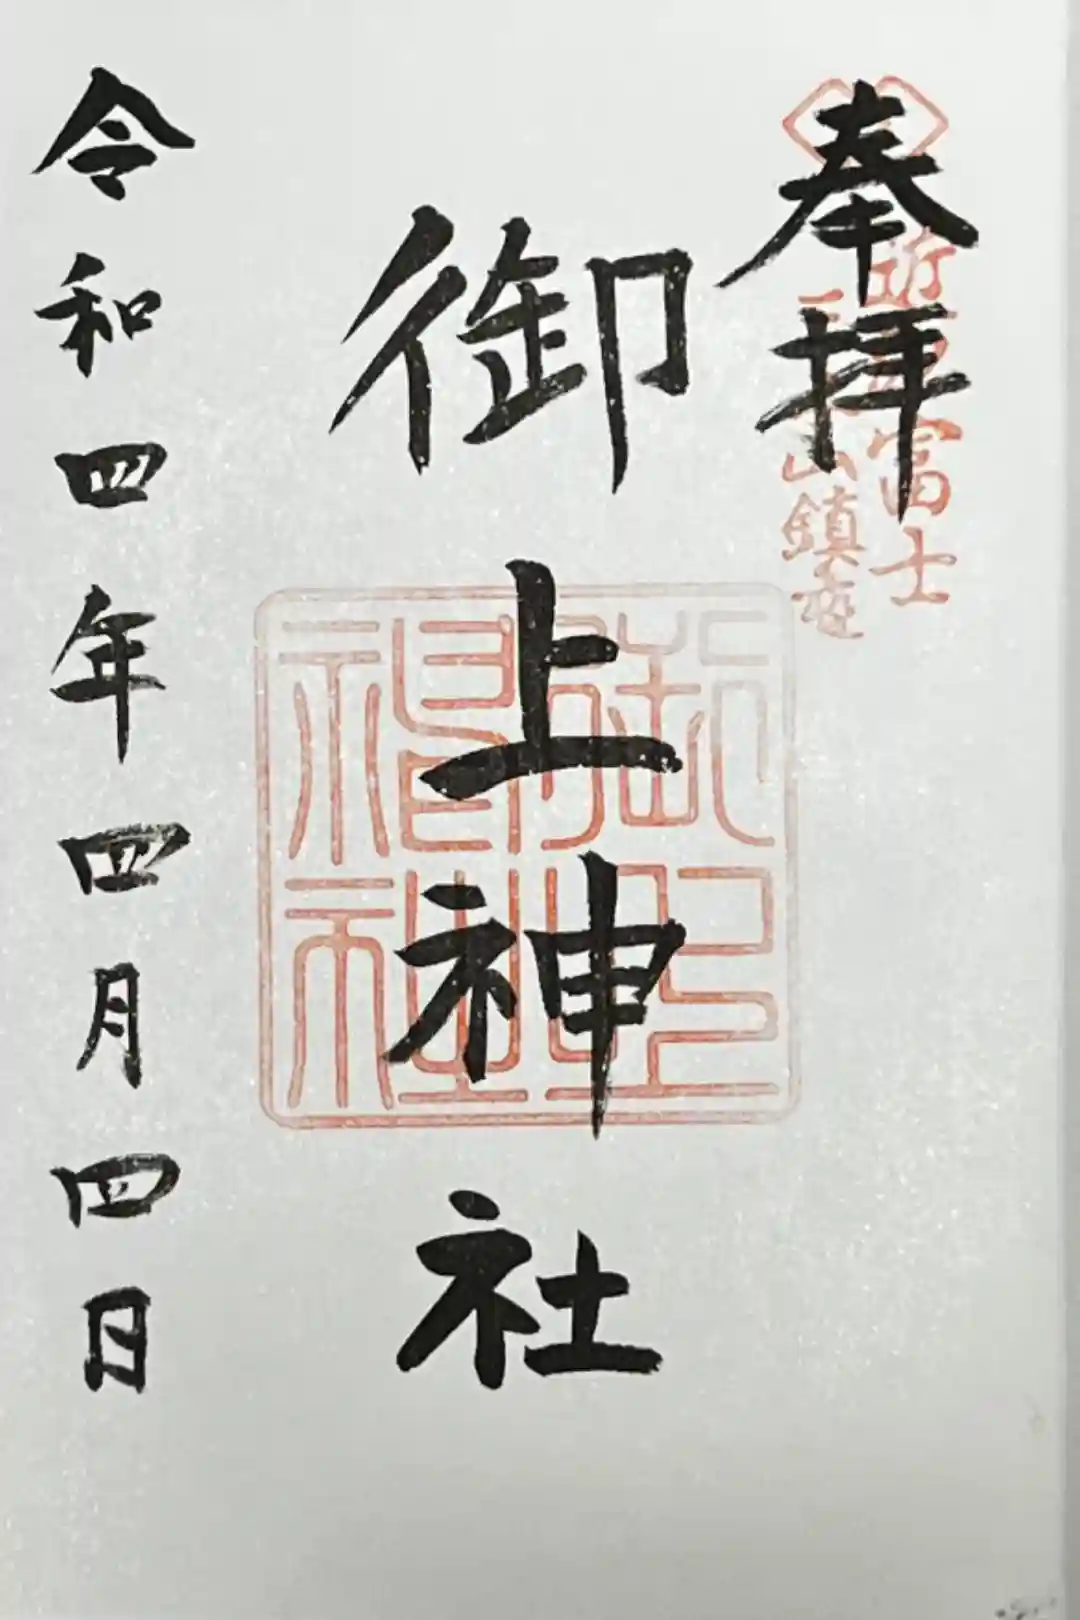 奉拝
近江富士
三上山鎮座
御上神社
御上神社
令和四年四月四日